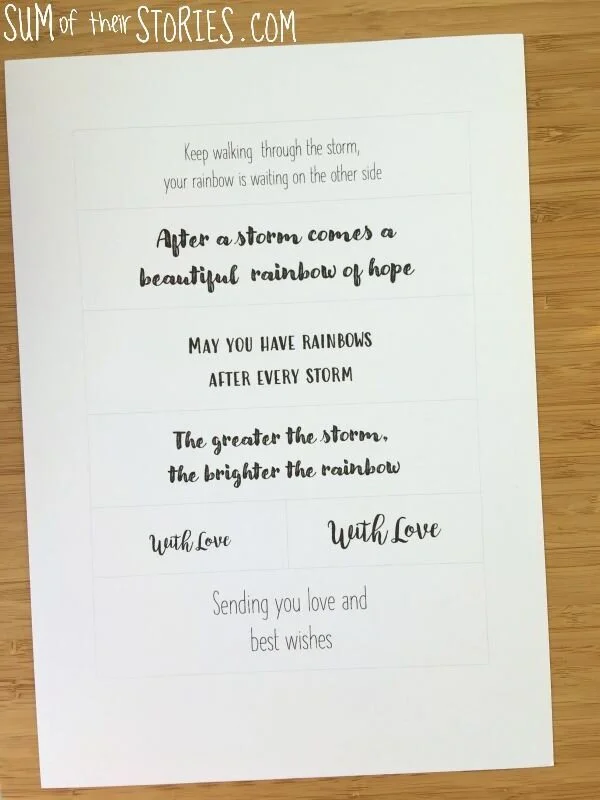 SUM of their STORIES.COM
Keep walking through the storm,
your rainbow is waiting on the other side
After a storm comes a
beautiful rainbow of hope
MAY YOU HAVE RAINBOWS
AFTER EVERY STORM
The greater the storm,
the brighter the rainbow
With Love
With Love
Sending you love and
best wishes